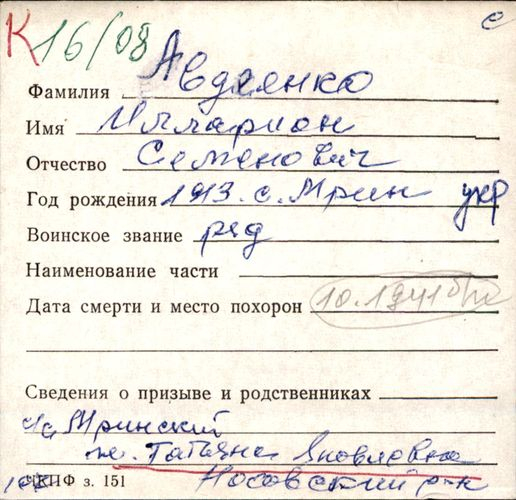 К 16/08 с
Фамилия Авдеенко
Имя Илларион
Отчество Семенович
Год рождения 1913. с. Мрин укр
Воинское звание ряд
Наименование части
Дата смерти и место похорон 10.1941 б/п
Сведения о призыве и родственниках
Мринский
ж. Татьяна Яковлевна
ЧКПФ з. 151 Носовский р-н